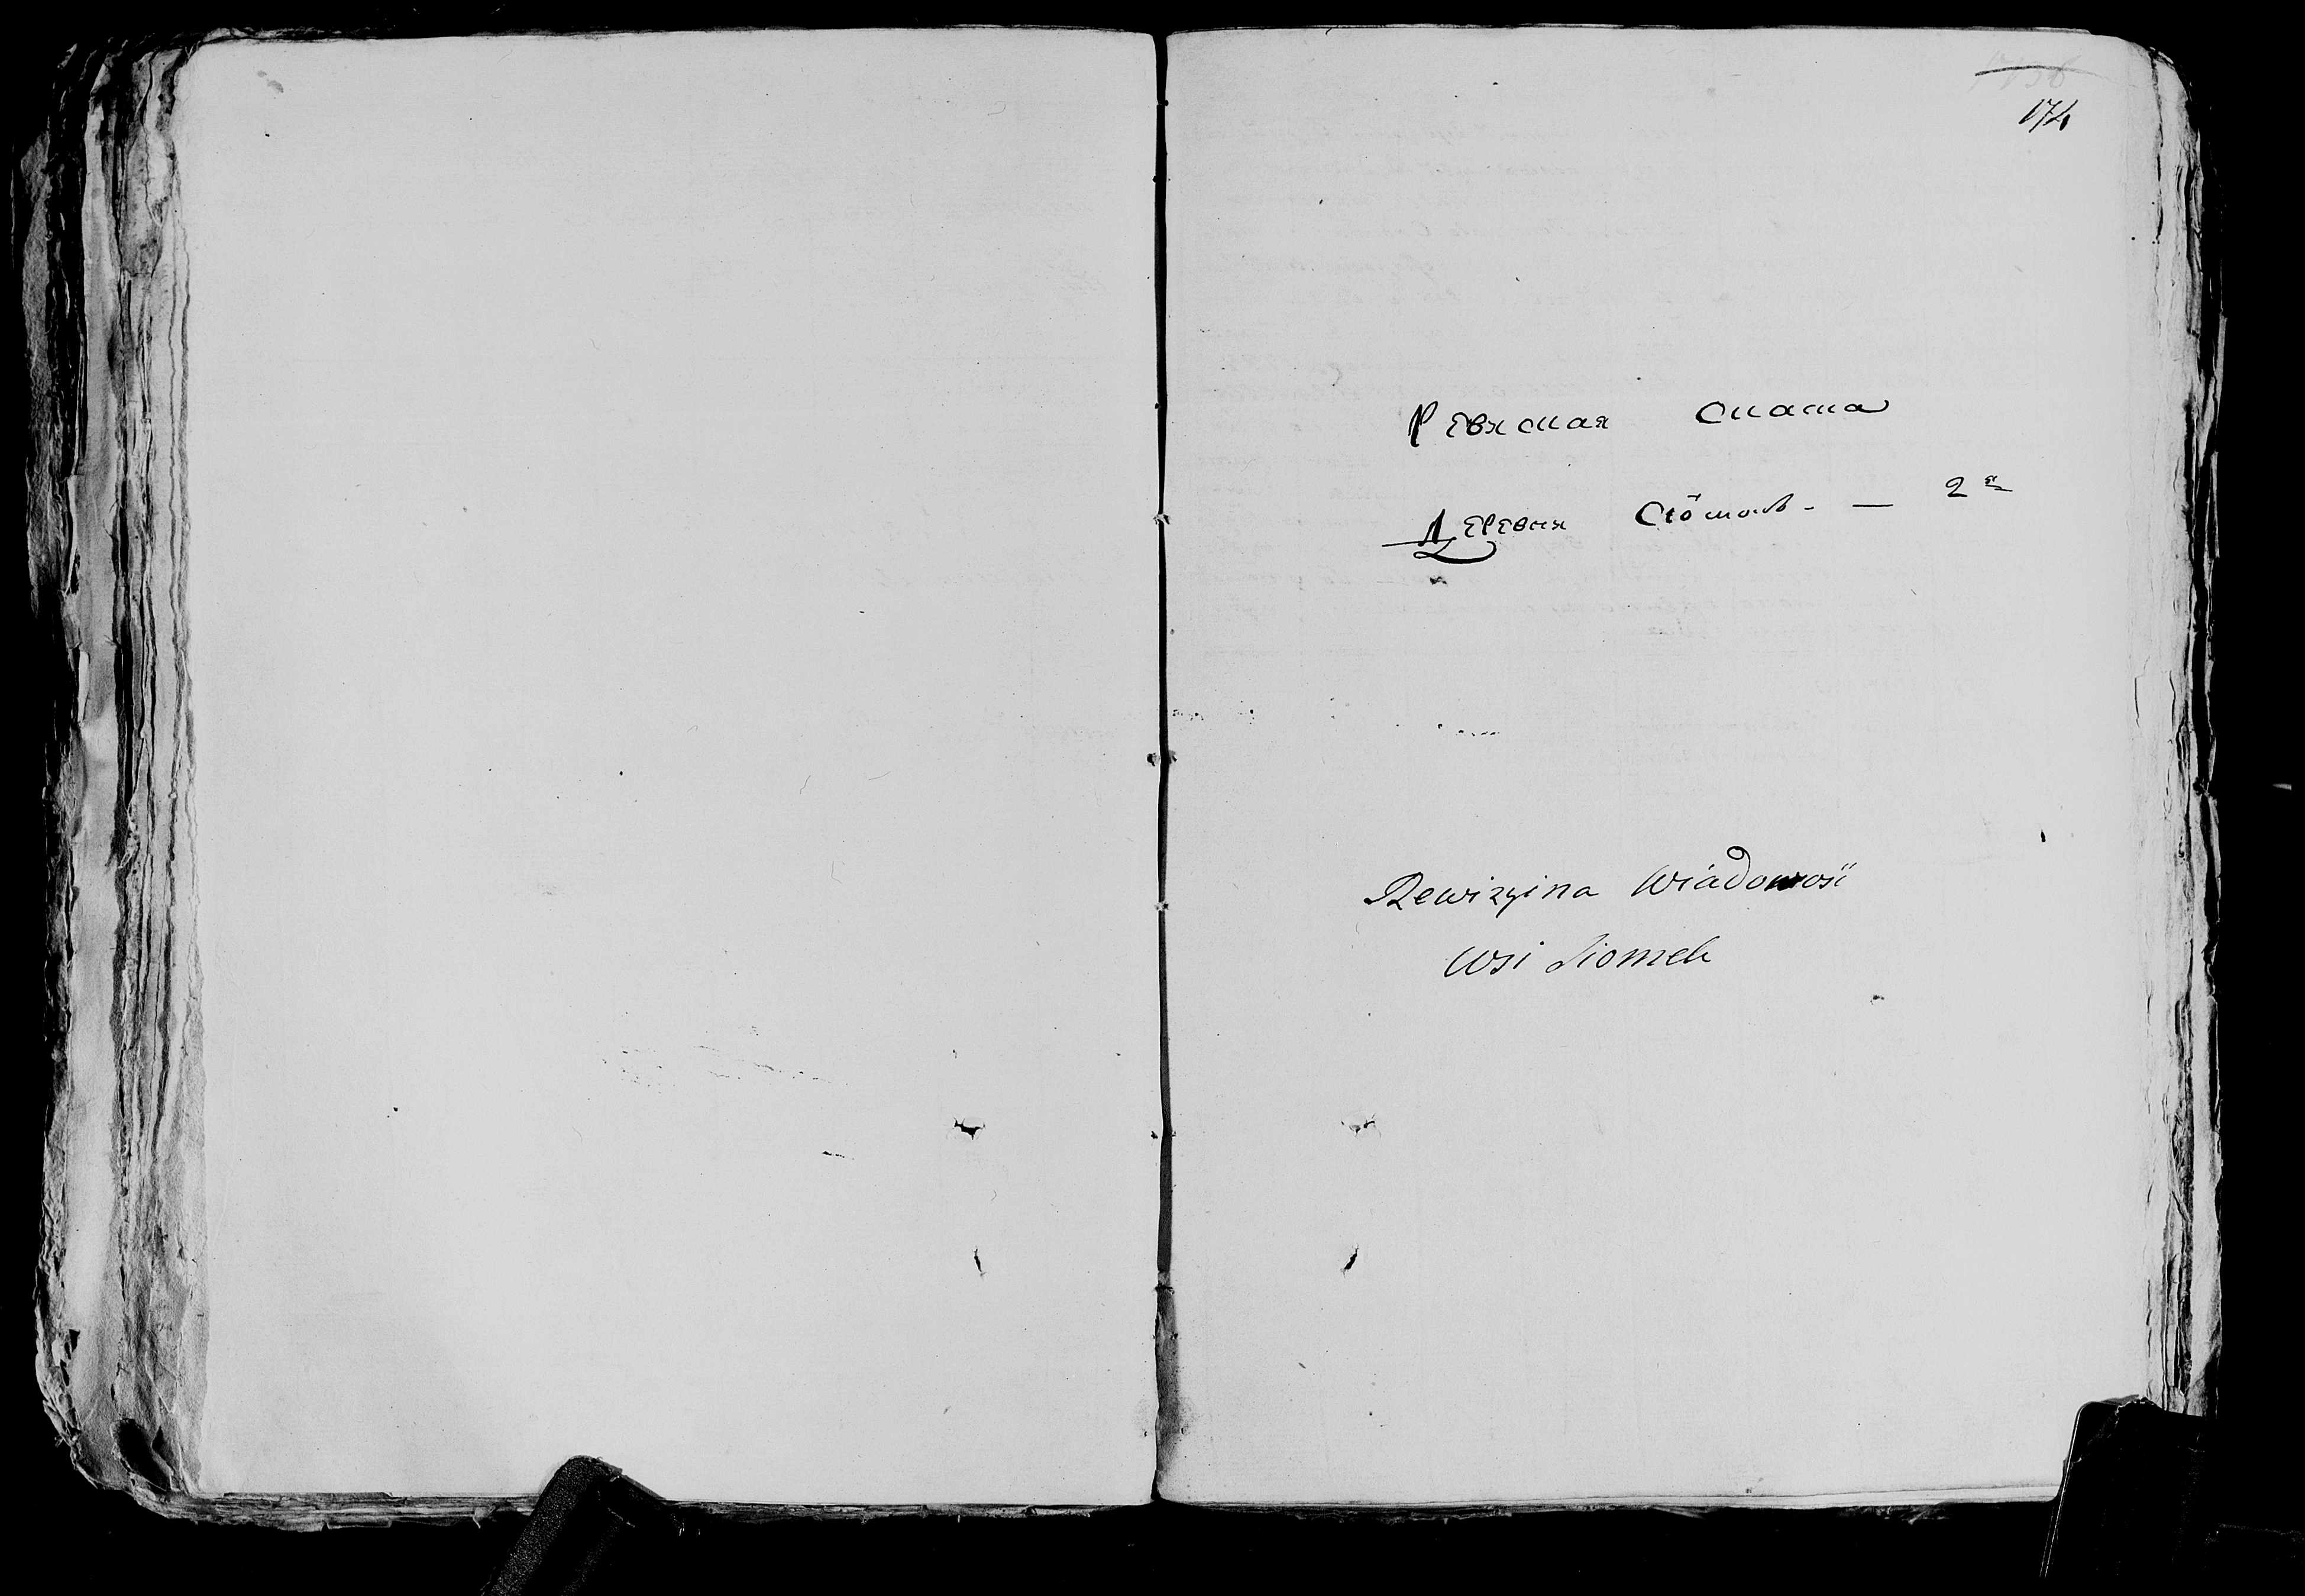 174
Ревиская Скаска
Деревни Сiомокъ - — 2я
Rewizyina Wiadomość
Wsi Siomek